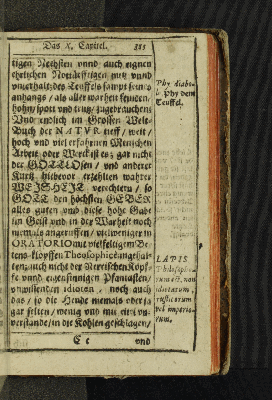 Das X. Capitel. 385
tigen Nechsten unnd auch eignen
ehrlichen Nortdürfftigen nutz unnd
unterhalt: des Teuffels sampt seines
anhangs / als aller warheit feunden,
hohn / spott und trug / zugebrauchen:
Und endlich im Grossen Welt-
Buch der NATUR tieff / weit /
hoch und viel erfahrnen Menschen
Arbeit oder Werck ist es; gar nicht
der GOTTLOSen / und anderer
Kurtz hiebevor erzehlten wahrer
WEISHEIT verechtern / so
GOTT den höchsten GEBER
alles guten und diese hohe Gabe
im Geist und in der Warheit noch
niemals angeruffen / viel weniger in
ORATORIO mit vielfeltigem Be-
tens-klopffen Theosophice angehal-
ten; auch nicht der Närrischen Köpf-
fe unnd eigensinnigen Phantasten /
unwissenden idioten, noch auch
das / so die Heyde niemals oder ja
gar selten / wenig und mit
verstande / in die Kohlen geschlagen /
E e und
Phy diabo-
Phy dem
Teuffel.
LAPIS
Philosopho-
rum est, non
idiotarum,
rusticorum
vel imperio-
rum.